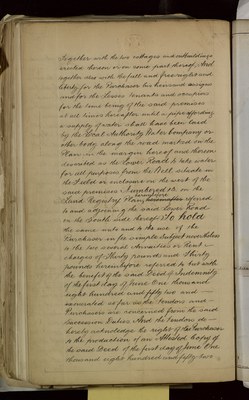 Together with the two cottages and outbuildings
erected thereon or on some part thereof And
together also with the full and free right and
liberty for the Purchaser his heirs and assigns
and for the lessees tenants and occupiers
for the time being of the said premises
at all times hereafter until a pipe affording
a supply of water shall have been laid
by the Local Authority Water Company or
other body along the road marked on the
Plan in the margin hereof and thereon
denoted as the Lower Road to take water
for all purposes from the Well situate in
the Field or inclosure on the west of the
said premises Numbered 12 on the
Land Registry Plan hereinbefore referred
to and adjoining the said Lower Road
on the South side thereof To hold
the same unto and to the use of the
Purchaser in fee simple Subject nevertheless
to the two several Annuities or Rent
charges of Thirty pounds and Thirty
pounds hereinbefore referred to but with
the benefit of the said Deed of Indemnity
of the first day of June One thousand
eight hundred and fifty two and
exonerated as far as the Vendors and
Purchaser are concerned from the said
Succession Duties And the Vendors do
hereby acknowledge the right of the Purchaser
to the production of an Attested Copy of
the said Deed of the first day of June One
thousand eight hundred and fifty two